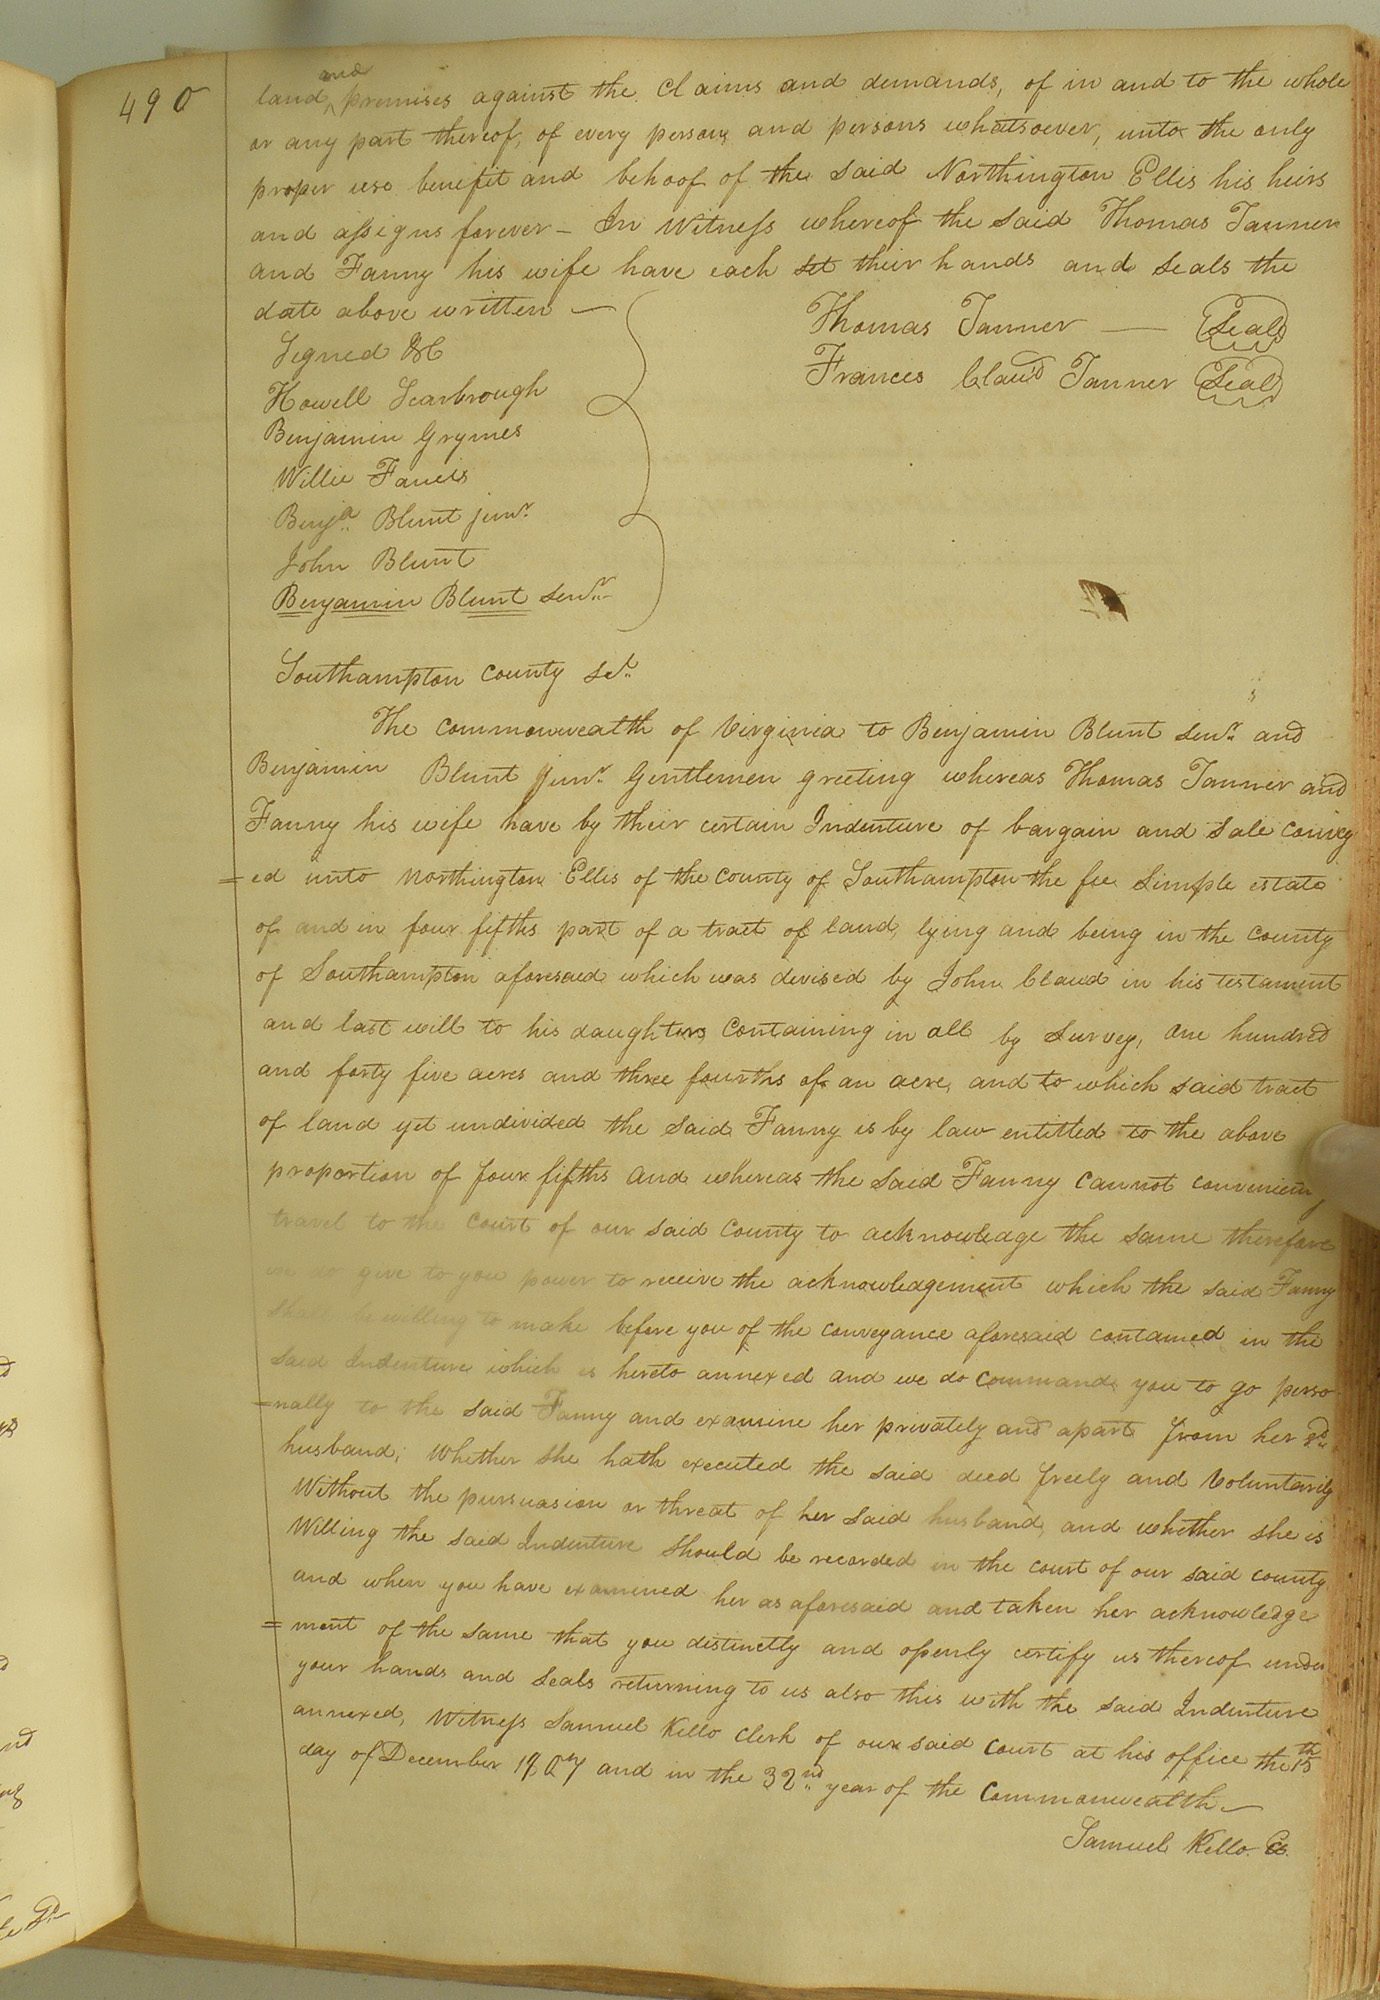 490
land and premises against the claims and demands, of in and to the whole
or any part thereof, of every person, and persons whatsoever, unto the only
proper use benefit and behoof of the said Northington Ellis his heirs
and assigns forever – In Witness whereof the said Thomas Tanner
and Fanny his wife have each set their hands and seals the
date above written —
Thomas Tanner — Seal
Signed &C
Frances Claud Tanner Seal
Howell Scarbrough
Benjamin Grymes
Willie Faneis
Benja. Blunt junr.
John Blunt
Benjamin Blunt senr.
Southampton County Sct.
The commonwealth of Virginia to Benjamin Blunt senr. and
Benjamin Blunt junr. Gentlemen greeting whereas Thomas Tanner and
Fanny his wife have by their certain Indenture of bargain and sale convey
=ed unto Northington Ellis of the County of Southampton the fee simple estate
of and in four fifths part of a tract of land, lying and being in the County
of Southampton aforesaid which was devised by John Claud in his testament
and last will to his daughters, containing in all by Survey, one hundred
and forty five acres and three fourths of an acre, and to which said tract
of land yet undivided the said Fanny is by law entitled to the above
proportion of four fifths and whereas the said Fanny cannot conveniently
travel to the Court of our said County to acknowledge the same therefore
we do give to you power to receive the acknowledgement which the said Fanny
shall be willing to make before you of the conveyance aforesaid contained in the
said Indenture which is hereto annexed and we do command you to go perso
=nally to the said Fanny and examine her privately and apart from her sd.
husband, Whether she hath executed the said deed freely and Voluntarily
Without the pursuasion or threat of her said husband, and whether she is
Willing the said Indenture should be recorded in the court of our said county
and when you have examined her as aforesaid and taken her acknowledge
=ment of the same that you distinctly and openly certify us thereof under
your hands and seals returning to us also this with the said Indenture
annexed, Witness Samuel Kello Clerk of our said Court at his office the 15th
day of December 1807 and in the 32nd. year of the Commonwealth —
Samuel Kello. Cl.